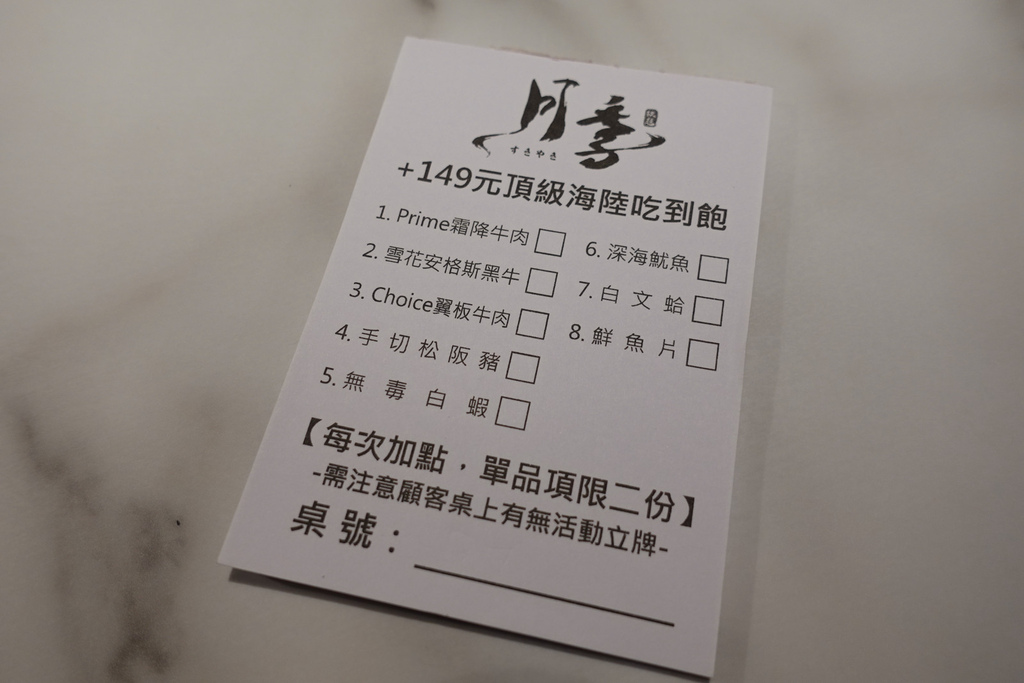 月季
すきやき
+149元頂級海陸吃到飽
1. Prime霜降牛肉 □
2. 雪花安格斯黑牛 □
3. Choice翼板牛肉 □
4. 手切松阪豬 □
5. 無毒白蝦 □
6. 深海魷魚 □
7. 白文蛤 □
8. 鮮魚片 □
【每次加點，單品項限二份】
-需注意顧客桌上有無活動立牌-
桌號：